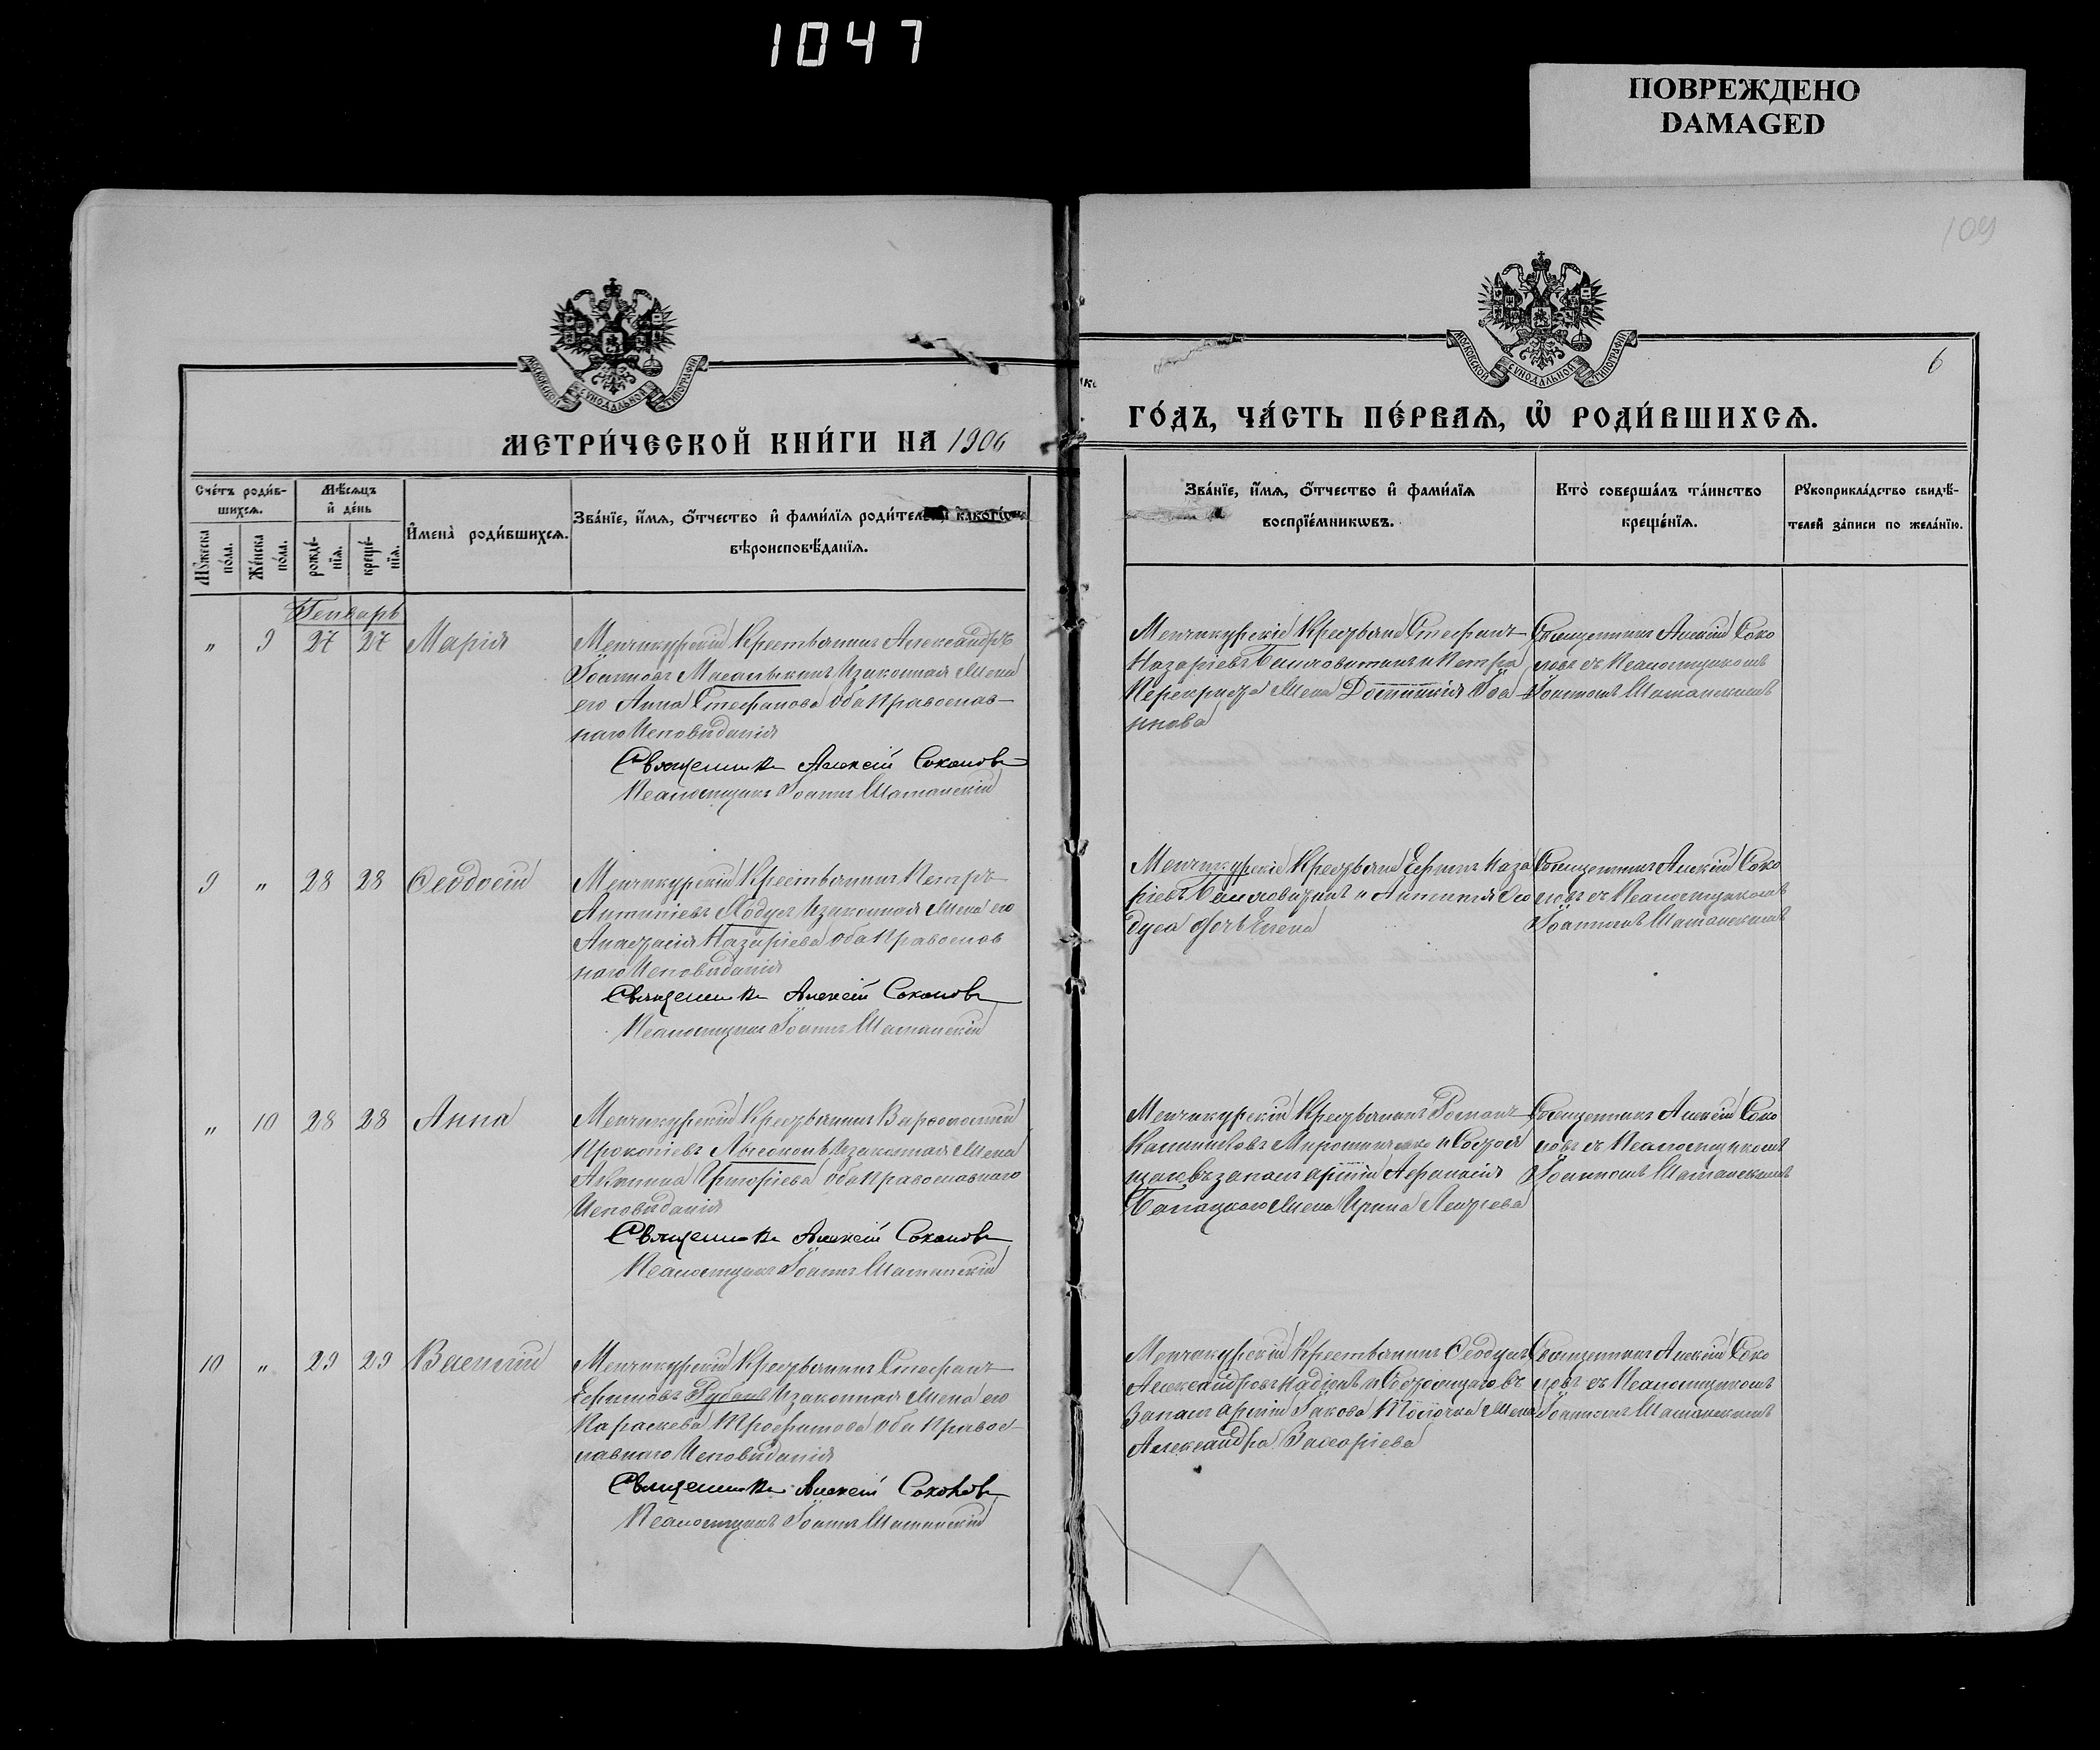 1047
ПОВРЕЖДЕНО
DAMAGED
109
МОСКОВСКОЙ СѴНОДАЛЬНОЙ ТИПОГРАФІИ
МОСКОВСКОЙ СѴНОДАЛЬНОЙ ТИПОГРАФІИ
6
МЕТРИ́ЧЕСКОЙ КНИ́ГИ НА 1906
ГО́ДЪ, ЧА́СТЬ ПЕ́РВАѦ, Ѡ҆ РОДИ́ВШИХСѦ.
Сче́тъ роди́в-
шихсѧ.
Мꙋ́жеска по́ла.
Же́нска по́ла.
Мѣ́сѧцъ
и҆ де́нь
рожде́-
нїѧ.
креще́-
нїѧ.
И҆мена̀ роди́вшихсѧ.
Зва́нїе, и҆́мѧ, ѻ҆́тчество и҆ фами́лїѧ роди́телей какого
вѣроисповѣ́данїѧ.
Зва́нїе, и҆́мѧ, ѻ҆́тчество и҆ фами́лїѧ
воспрїе́мникѡвъ.
Кто̀ соверша́лъ та́инство
креще́нїѧ.
Рꙋкоприкла́дство свидѣ́-
телей за́писи по жела́нїю.
Генварь
" 9 27 27 Марія
Менчикурскій Крестьянинъ Александръ
Іоанновъ Масалыкинъ и законная жена
его Анна Стефанова оба Православ-
наго Исповѣданія
Священникъ Алексій Соколовъ
Псаломщикъ Іоаннъ Шаманскій
Менчикурскіе Крестьяне Стефанъ
Назаріевъ и Петра
жена Іоа-
ннова
Священникъ Алексій Соко
ловъ съ Псаломщикомъ
Іоанномъ Шаманскимъ
9 " 28 28 Ѳеодосій
Менчикурскій Крестьянинъ Петръ
Антипіевъ и законная жена его
Анастасія Назаріева оба Православ
наго Исповѣданія
Священникъ Алексій Соколовъ
Псаломщикъ Іоаннъ Шаманскій
Менчикурскіе Крестьяне Ефимъ Наза
ріевъ и
дочь Елена
Священникъ Алексій Соко
ловъ съ Псаломщикомъ
Іоанномъ Шаманскимъ
" 10 28 28 Анна
Менчикурскій Крестьянинъ Варѳоломей
Прокопіевъ и законная жена
Акилина Григоріева оба Православнаго
Исповѣданія
Священникъ Алексій Соколовъ
Псаломщикъ Іоаннъ Шаманскій
Менчикурскій Крестьянинъ Романъ
Мирошниченко и Состоя
щаго въ запасѣ арміи Аѳанасія
жена Ирина
Священникъ Алексій Соко
ловъ съ Псаломщикомъ
Іоанномъ Шаманскимъ
10 " 29 29 Василій
Менчикурскій Крестьянинъ Стефанъ
Ефимовъ Рубанъ и законная жена его
Параскева Трофимова оба Правос-
лавнаго Исповѣданія
Священникъ Алексій Соколовъ
Псаломщикъ Іоаннъ Шаманскій
Менчикурскій Крестьянинъ Ѳеодулъ
Александровъ и Состоящаго въ
Запасѣ арміи Іакова жена
Александра Захаріева
Священникъ Алексій Соко
ловъ съ Псаломщикомъ
Іоанномъ Шаманскимъ